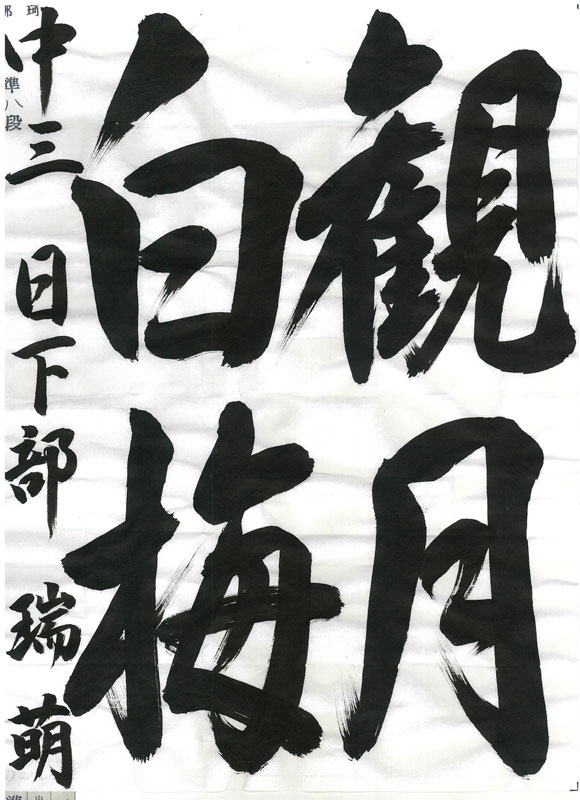 観月
白梅
中三 日下部 瑞萌
準八段